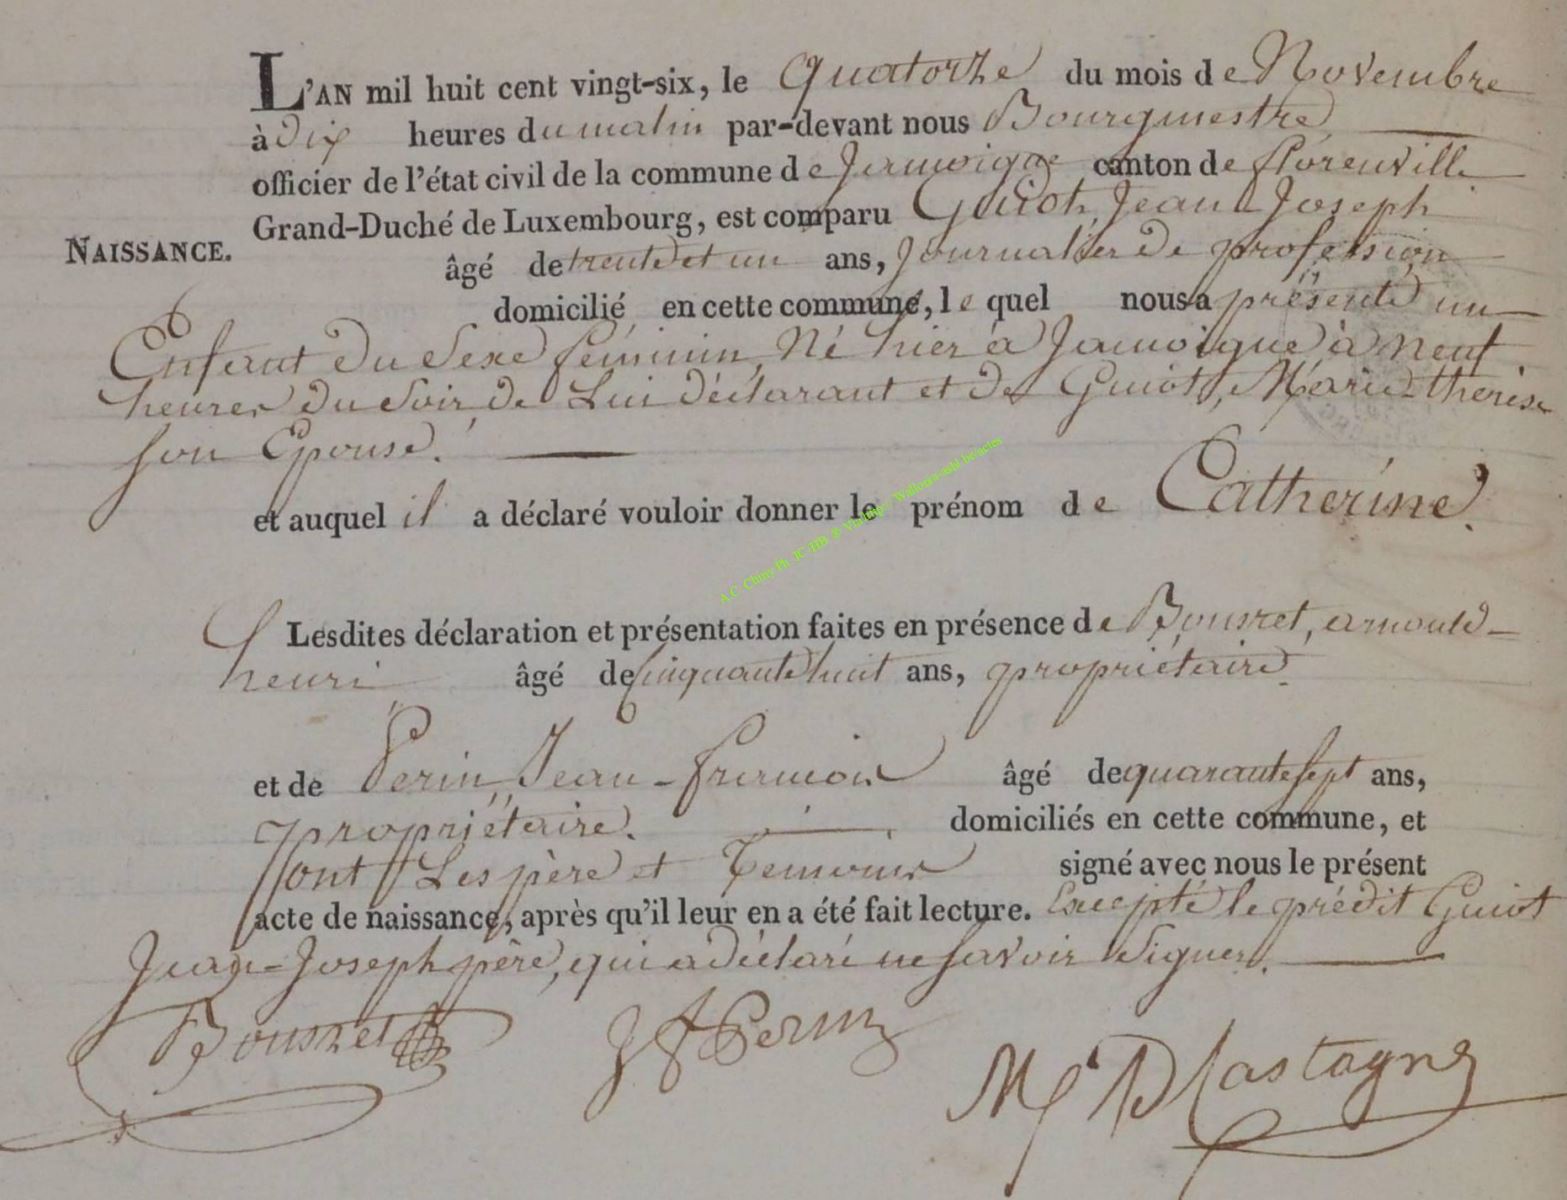 L'AN mil huit cent vingt-six, le Quatorze du mois de Novembre
à dix heures du matin par-devant nous Bourgmestre
officier de l'état civil de la commune de Jamoigne canton de florenville
Grand-Duché de Luxembourg, est comparu Guiot, Jean-Joseph
NAISSANCE. âgé de trente et un ans, Journalier de profession
domicilié en cette commune, le quel nous a présenté un
Enfant du Sexe féminin, Né hier à Jamoigne à neuf
heures du Soir, de Lui déclarant et de Guiot, Marie-thérèse
son Epouse.
et auquel il a déclaré vouloir donner le prénom de Catherine.
A C Chiny Ph JC HB ® Wallonia-asbl be/actes
Lesdites déclaration et présentation faites en présence de Bousret, arnould-
henri âgé de Cinquante huit ans, propriétaire.
et de Perin, Jean-francois âgé de quarante sept ans,
propriétaire. domiciliés en cette commune, et
ont Les père et Temoins signé avec nous le présent
acte de naissance, après qu'il leur en a été fait lecture. Excepté le prédit Guiot
Jean-Joseph père, qui a déclaré ne savoir Signer.
Bousret JF Perin
Castagne